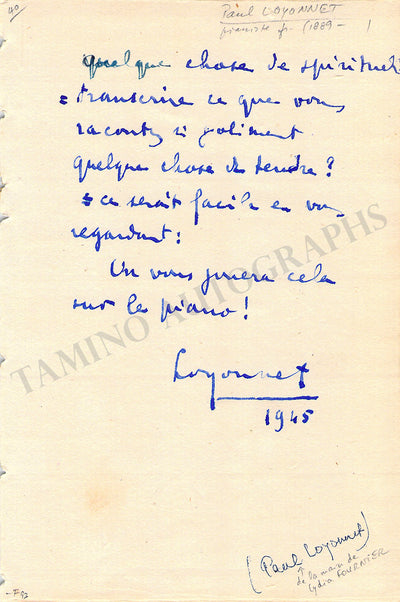 40
Paul LOYONNET
pianiste fr. (1889 - )
quelque chose de spirituel?
= transcrire ce que vous
racontez si joliment
quelque chose de tendre?
= ce serait facile en vous
regardant:
On vous jouera cela
sur le piano!
Loyonnet
1945
TAMINO AUTOGRAPHS
(Paul Loyonnet)
↑
de la main de
Lydia FOURNIER